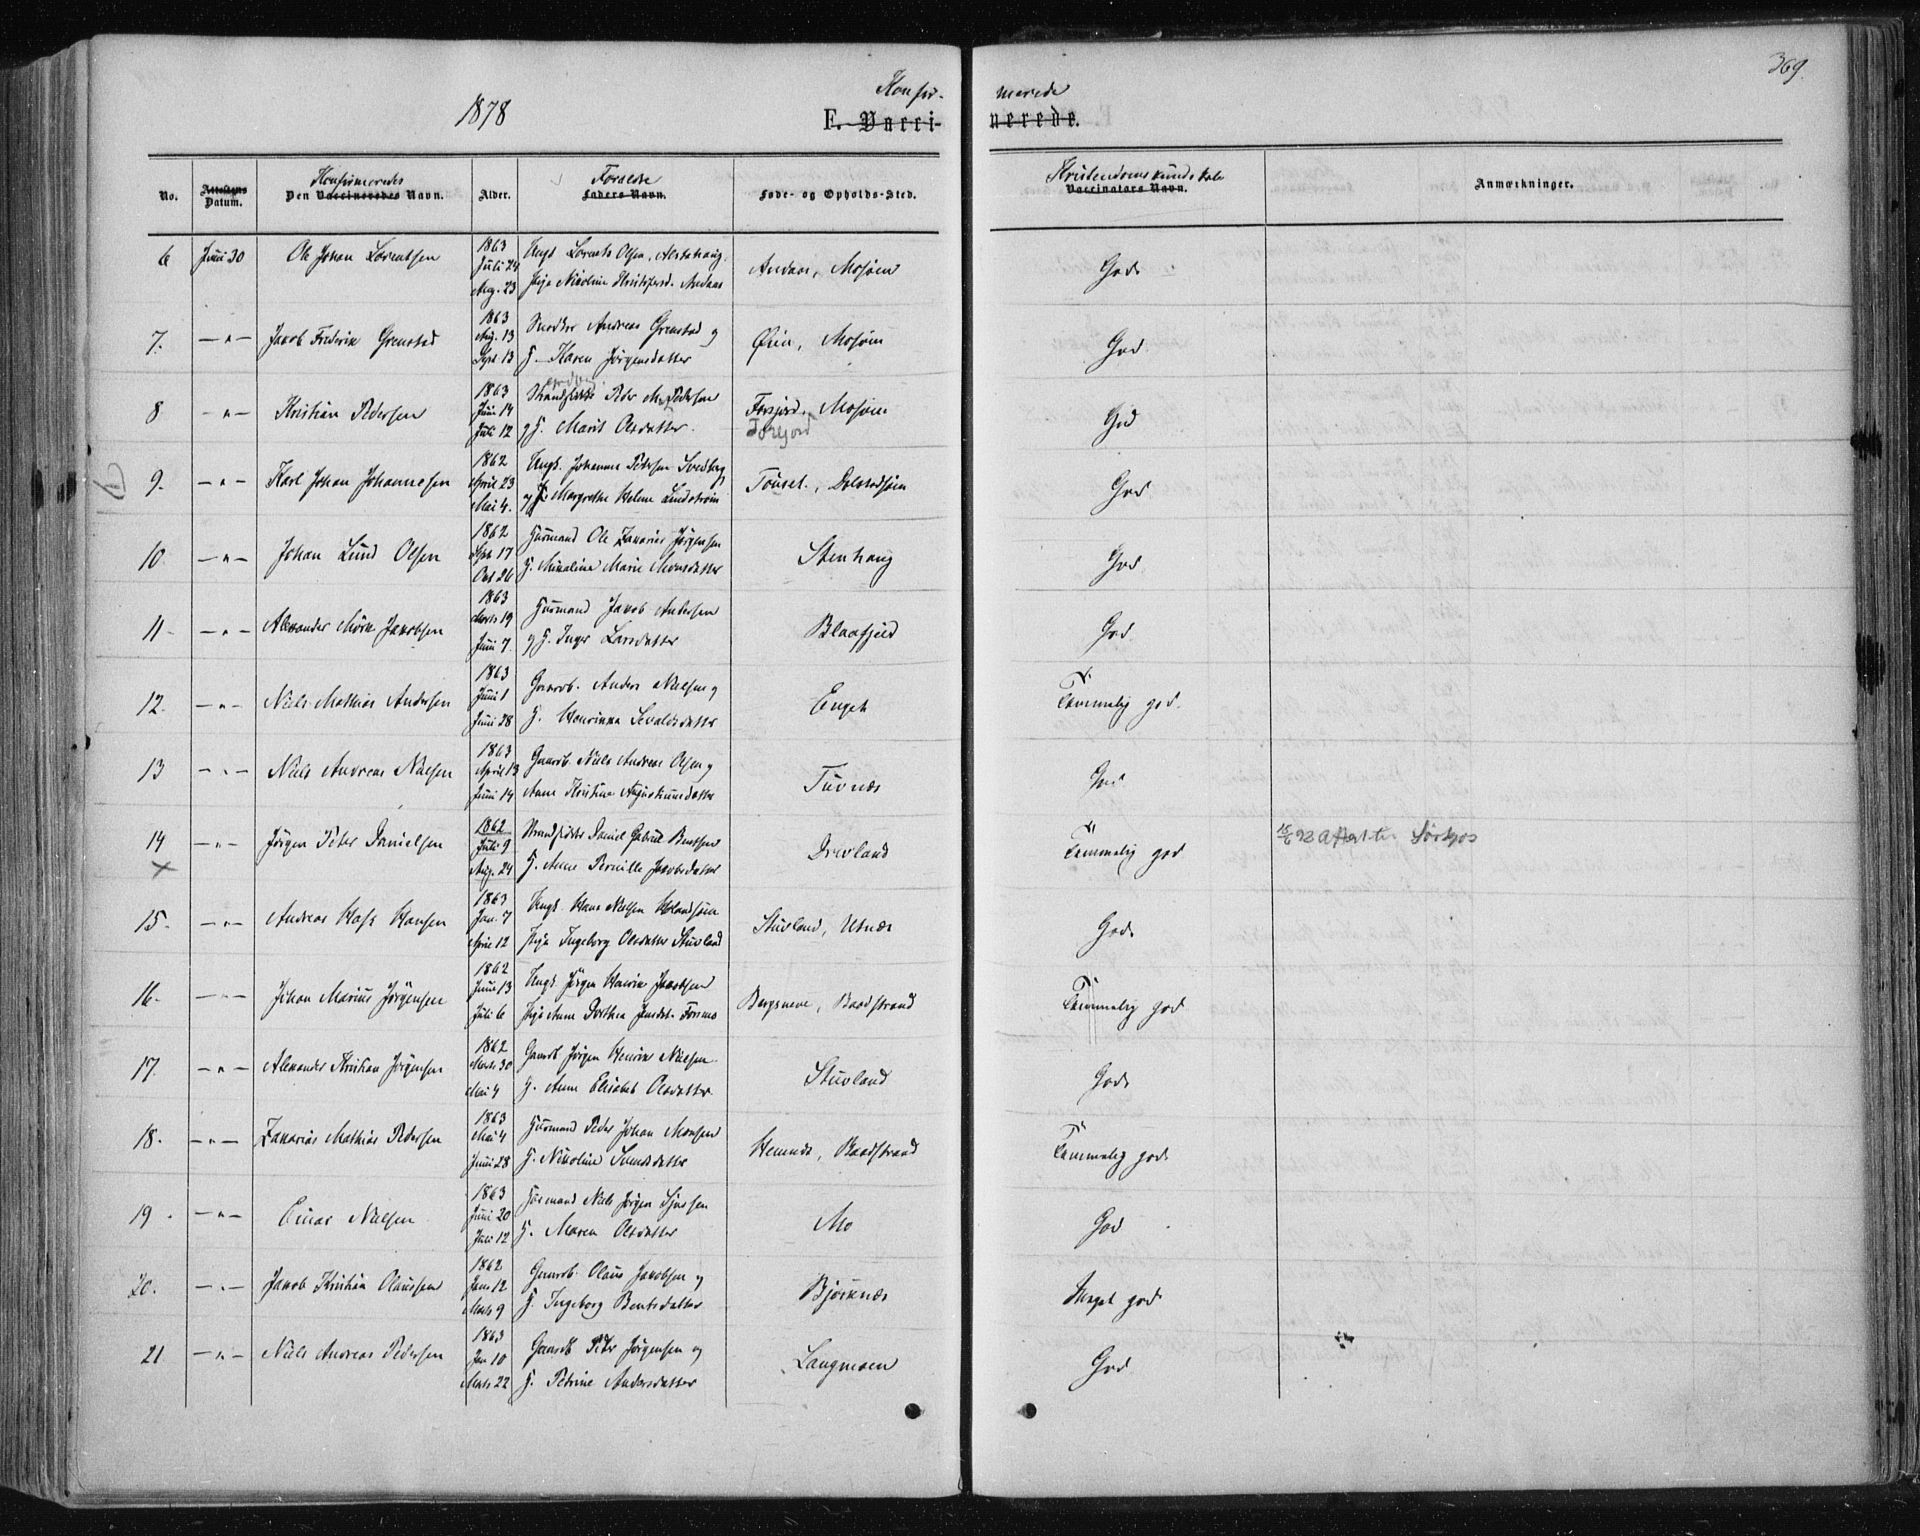 369.
1878
Konfir-
merede
F. Vacci-
nerede.
No.
Attestens Datum.
Konfirmeredes
Den Vaccineredes Navn.
Alder.
Forældre
Faders Navn.
Føde- og Opholds-Sted.
Kristendomskundskab
Vaccinators Navn.
Anmærkninger.
6 Juni 30 Ole Johan Lorentsen 1863 Juli 24 Aug. 23 Ungk. Lorents Olsen, Alstahaug, Pige Nikoline Kristofersd. Andaas Andaas, Mosjøen God
7. —„— Jakob Frederik Grenstad 1863 Aug. 13 Sept. 13 Snedker Andreas Grenstad og H. Karen Jørgensdatter Øien, Mosjøen God
8 —„— Kristian Pedersen 1863 Juni 14 Juli 12 Strandsidder Peder M. Pedersen og H. Marit Olsdatter. Forsjord, Mosjøen God
9. —„— Karl Johan Johannesen 1862 April 23 Mai 4. Ungk. Johannes Pedersen Svedberg og P. Margrethe Helene Lindstrøm Touset, Dolstadsjøen God
10. —„— Johan Lund Olsen 1862 Sept. 17 Oct 26 Huusmand Ole Zakarias Jørgensen H. Mikaline Marie Monsdatter Stenhaug God
11. —„— Alexander Mörk Jakobsen 1863 Marts 19 Juni 7. Huusmand Jakob Andersen og H. Inger Larsdatter Blaafjeld God
12. —„— Niels Mathias Andersen 1863 Juni 1 Juni 28 Gaardb. Anders Nielsen og H. Henrikka Sevaldsdatter Enget Temmelig god.
13 —„— Niels Andreas Nielsen 1863 April 13 Juni 14 Gaardb. Niels Andreas Olsen og Anne Kristine Augustinusdatter Tuvnæs God
14 —„— Jørgen Peter Danielsen 1862 Juli 9 Aug. 24 Strandsidder Daniel Gabriel Bentsen H. Anne Pernille Jakobsdatter Drevland Temmelig god 15/6 93 Attest
15. —„— Andreas Hansen 1863 Jan. 7 April 12 Ungk. Hans Nielsen Pige Ingeborg Olsdatter Stuvland Stuvland, Utnæs God.
16. —„— Johan Marius Jørgensen 1862 Juni 13 Juli 6 Ungk. Jørgen Henrik Jakobsen Pige Anne Dorthea Jensdt. Forsmo Bergsneve, Baadstrand Temmelig god
17. —„— Alexander Kristian Jørgensen 1862 Marts 30 Mai 4 Gaardb Jørgen Henrik Nielsen H. Anne Elisabet Olsdatter. Stuvland God.
18. —„— Zakarias Mathias Pedersen 1863 Mai 4 Juni 28 Huusmand Peder Johan Monsen H. Nikoline Hemnæs, Baadstrand Temmelig god.
19. —„— Einar Nielsen 1863 Juni 20 Juli 12 Huusmand Niels Jørgen H. Maren Olsdatter Mo God
20. —„— Jakob Kristian Olaussen 1862 Jan. 12 Marts 9 Gaardb. Olaus Jakobsen og H. Ingeborg Bentsdatter Bjørknæs Meget god
21 —„— Niels Andreas Pedersen 1863 Jan 10 Marts 22 Gaardb Peder Jørgensen og H. Petrine Andersdatter Langmoen God